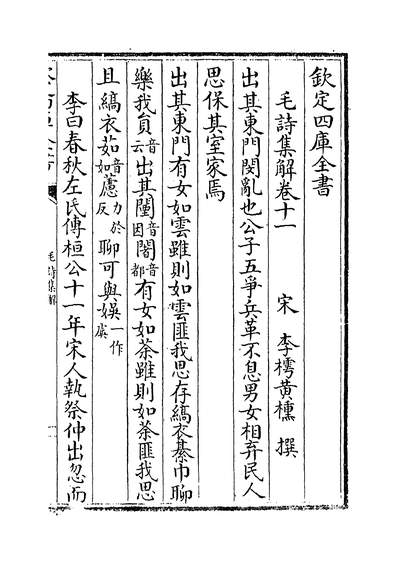 欽定四庫全書
毛詩集解卷十一 宋 李樗黃櫄 撰
出其東門閔亂也公子五爭兵革不息男女相弃民人
思保其室家焉
出其東門有女如雲雖則如雲匪我思存縞衣綦巾聊
樂我員音云出其闉音因闍音都有女如荼雖則如荼匪我思
且縞衣茹音如藘力於反聊可與娛一作虞
李曰春秋左氏傳桓公十一年宋人執祭仲出忽而
毛詩集解